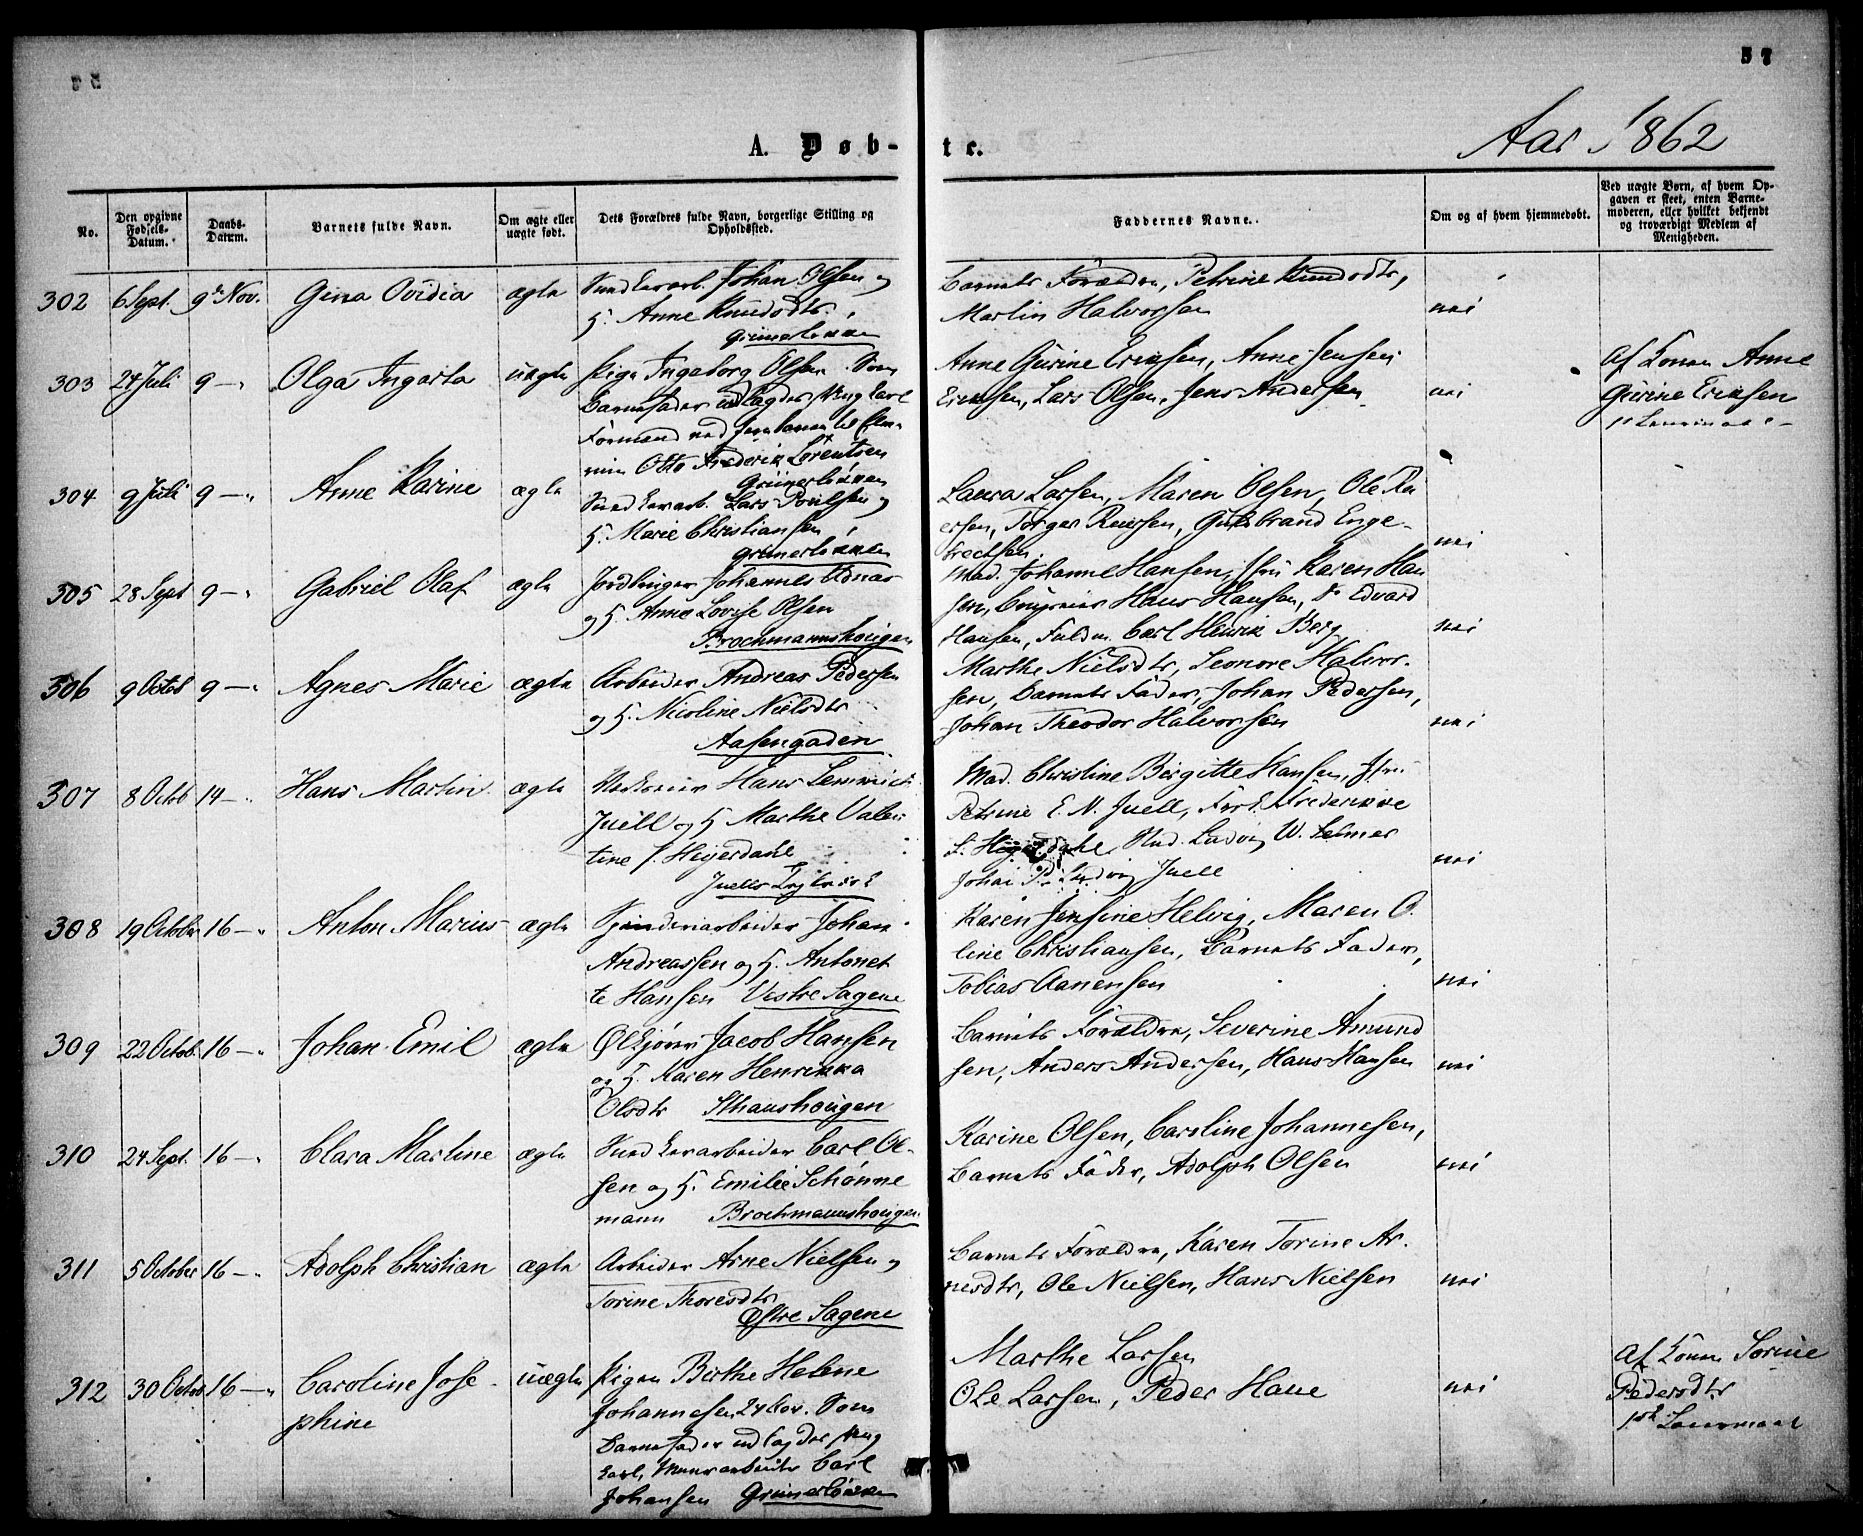 57
Aar 1862
A. Døb-
te.
No.
Den opgivne Fødsels-Datum.
Daabs-Datum.
Barnets fulde Navn.
Om ægte eller uægte født.
Dets Forældres fulde Navn, borgerlige Stilling og Opholdssted.
Faddernes Navne.
Om og af hvem hjemmedøbt.
Ved uægte Børn, af hvem Opgaven er skeet, enten Barnemoderen, eller hvilket bekjendt og troværdigt Medlem af Menigheden.
302 6 Sept. 9de Nov. Gina Ovidia ægte
Johan Olsen og
H. Anne Knudsdtr.
Grünerløkken
Barnets Forældre, Petrine Knudsdtr,
Martin Halvorsen nei
303 24 Juli 9 — Olga Ingarta uægte
Pige Ingeborg Olsen. Som
Barnefader udlagdes Ungkarl
Formand ved Jernbanen
Otto Frederik Lorentsen
Grünerløkken
Anne Gurine Eriksen, Anne Jensen
Eriksen, Lars Olsen, Jens Andersen nei
Af Konen Anne
Gurine Eriksen
304 9 Juli 9 — Anne Karine ægte
Snedkerarb. Lars Poulsen og
H. Marie Christiansen
Grünerløkken
Laura Larsen, Maren Olsen, Ole
Torger Guldbrand Enge-
bretsen. nei
305 28 Sept 9 — Gabriel Olaf ægte
Johannes
og H. Anne Lovise Olsen
Brochmannshougen
Mad. Johanne Hansen, Jfru Karen Han
sen, Hans Hansen, Do Edvard
Hansen, Fuldm. Carl Henrik Berg nei
306 9 Octob 9 — Agnes Marie ægte
Arbeider Andreas Pedersen
og H. Nicoline Nielsdtr
Aasengaden
Marthe Nielsdtr, Leonore Halvor-
sen, Barnets Fader, Johan Pedersen,
Johan Theodor Halvorsen nei
307 8 Octob 14 — Hans Martin ægte
Hans Lemmich
Juell og H. Marthe Valen
tine f. Heyerdahl
Mad. Christine Birgitte Hansen, Jfru
Petrine E. N. Juell, Frederikke
Stud. Ludvig W. Selmer
Ludvig Juell nei
308 19 October 16 — Anton Marius ægte
Spinderiarbeider Johan
Andreassen og H. Antonet
te Hansen Vestre Sagene
Karen Jensine Helvig, Maren O
line Christiansen, Barnets Fader,
Tobias Aanensen nei
309 22 Octob. 16 — Johan Emil ægte
Ølkjører Jacob Hansen
og H. Karen Henrikka
Olsdtr Sthanshougen
Barnets Forældre, Severine Amund
sen, Anders Andersen, Hans Hansen nei
310 24 Sept. 16 — Clara Martine ægte
Snedkerarbeider Carl Ol-
sen og H. Emilie Schønne
mann Brochmannshougen
Karine Olsen, Caroline Johannesen,
Barnets Fader, Adolph Olsen nei
311 5 October 16 — Adolph Christian ægte
Arbeider Arne Nielsen og
Torine Thoresdtr
Østre Sagene
Barnets Forældre, Karen Torine Ar-
nesdtr, Ole Nielsen, Hans Nielsen nei
312 30 Octob 16 — Caroline Jose-
phine uægte
Pigen Berthe Helene
Johannesen, 24 Som
Barnefader udlagdes Ung
karl, Murarbeider Carl
Johansen Grünerløkken
Marthe Larsen
Ole Larsen, Peder Haue nei
Af Konen Torine
Pedersdtr